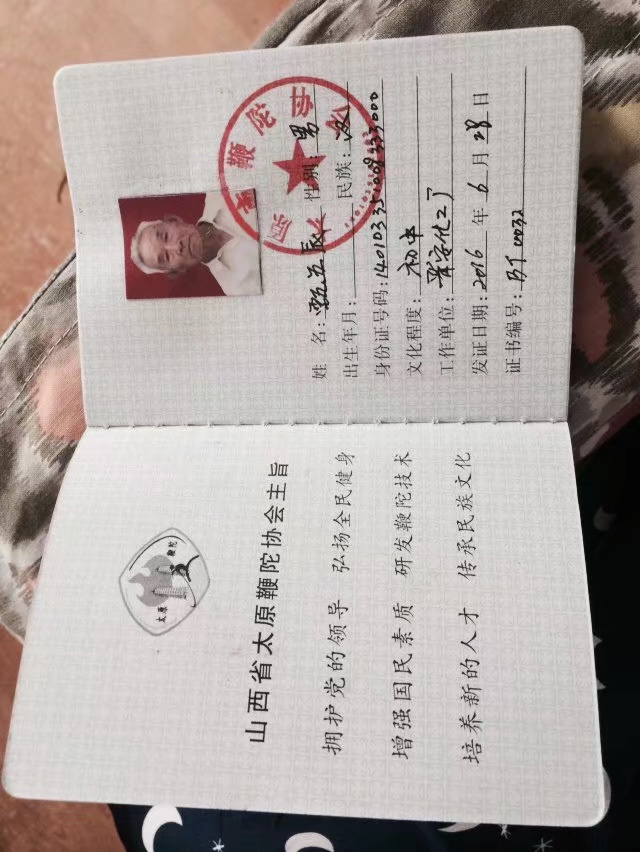 太原
鞭陀
山西省太原鞭陀协会主旨
拥护党的领导 弘扬全民健身
增强国民素质 研发鞭陀技术
培养新的人才 传承民族文化
姓 名: 性别: 男
出生年月: 民族: 汉
身份证号码:
文化程度: 初中
工作单位: 晋安化工厂
发证日期: 2016 年 6 月 28 日
证书编号: BT0032